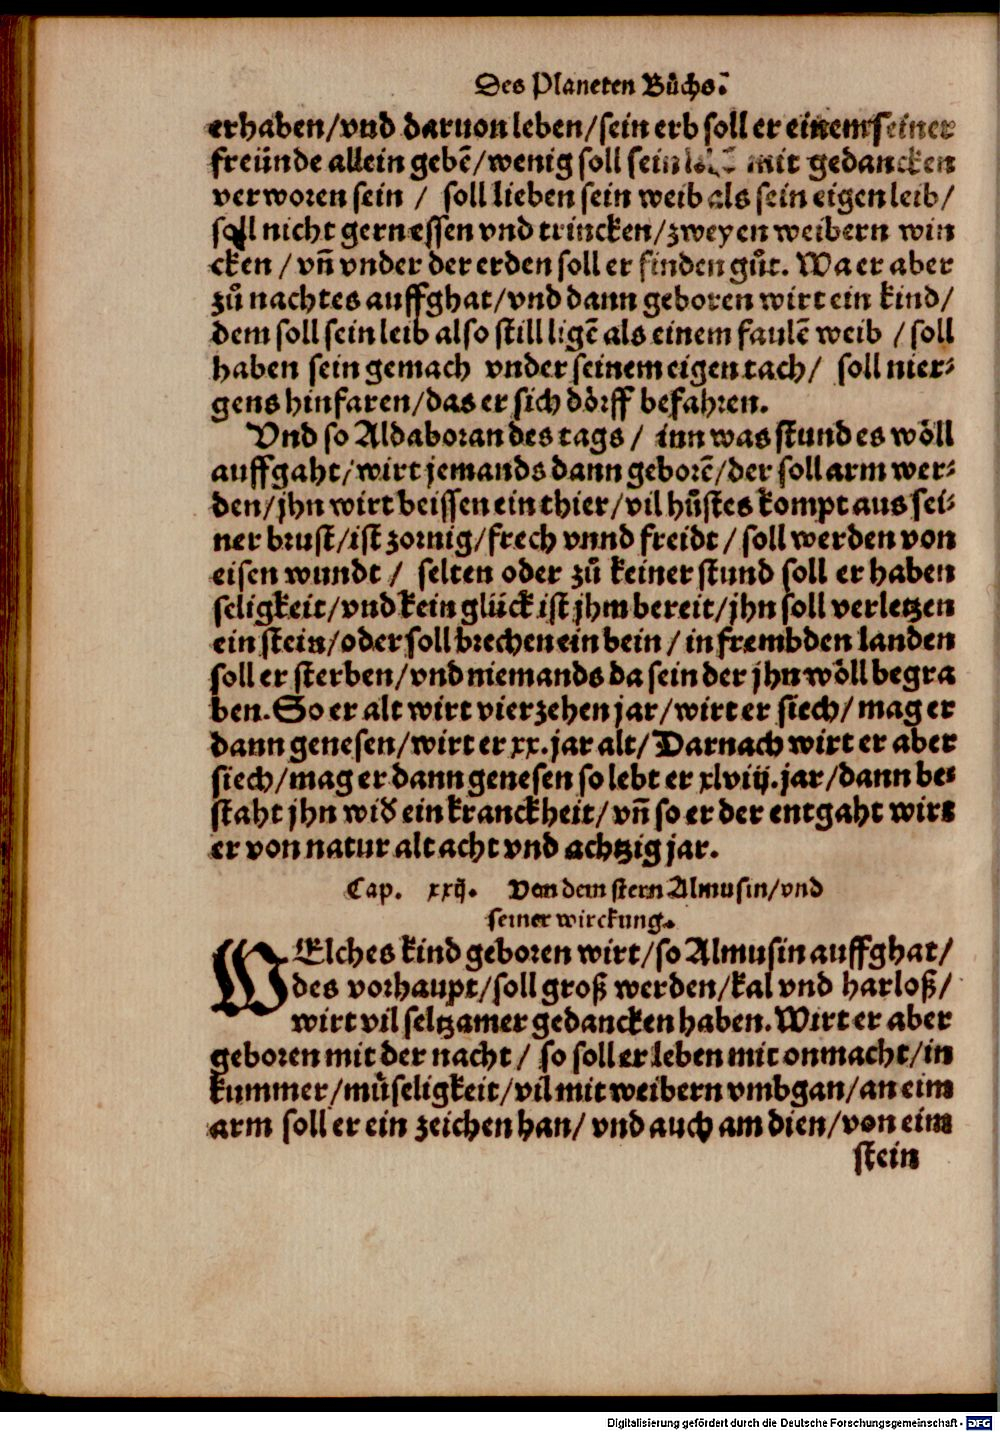 Des Planeten Bůchs.
erhaben/vnd daruon leben/sein erb soll er einem seiner
freünde allein gebē/wenig soll sein mit gedancken
verworen sein / soll lieben sein weib als sein eigen leib/
soll nicht gern essen vnd trincken/zweyen weibern win
cken / vñ vnder der erden soll er finden gůt. Wa er aber
zů nachtes auffghat/vnd dann geboren wirt ein kind/
dem soll sein leib also still ligē als einem faulē weib / soll
haben sein gemach vnder seinem eigen tach/ soll nier-
gens hinfaren/das er sich dörff befahren.
Vnd so Aldaboran des tags / inn was stund es wöll
auffgaht/wirt jemands dann geborē/der soll arm wer-
den/jhn wirt beissen ein thier/vil hůstes kompt aus sei-
ner brust/ist zornig/frech vnnd freidt / soll werden von
eisen wundt / selten oder zů keiner stund soll er haben
seligkeit/vnd kein glück ist jhm bereit/jhn soll verletzen
ein stein/oder soll brechen ein bein / in frembden landen
soll er sterben/vnd niemands da sein der jhn wöll begra
ben. So er alt wirt vierzehen jar/wirt er siech/ mag er
dann genesen/wirt er xx. jar alt/ Darnach wirt er aber
siech/mag er dann genesen so lebt er xlviij. jar/dann be-
staht jhn wid ein kranckheit/ vñ so er der entgaht wirt
er von natur alt acht vnd achtzig jar.
Cap. xxij. Von dem stern Almusin/vnd
seiner wirckung.
WElches kind geboren wirt/so Almusin auffghat/
des vorhaupt/soll groß werden/kal vnd harloß/
wirt vil seltzamer gedancken haben. Wirt er aber
geboren mit der nacht / so soll er leben mit onmacht/in
kummer/můseligkeit/vil mit weibern vmbgan/an eim
arm soll er ein zeichen han/ vnd auch am dien/von eim
stein
Digitalisierung gefördert durch die Deutsche Forschungsgemeinschaft - DFG